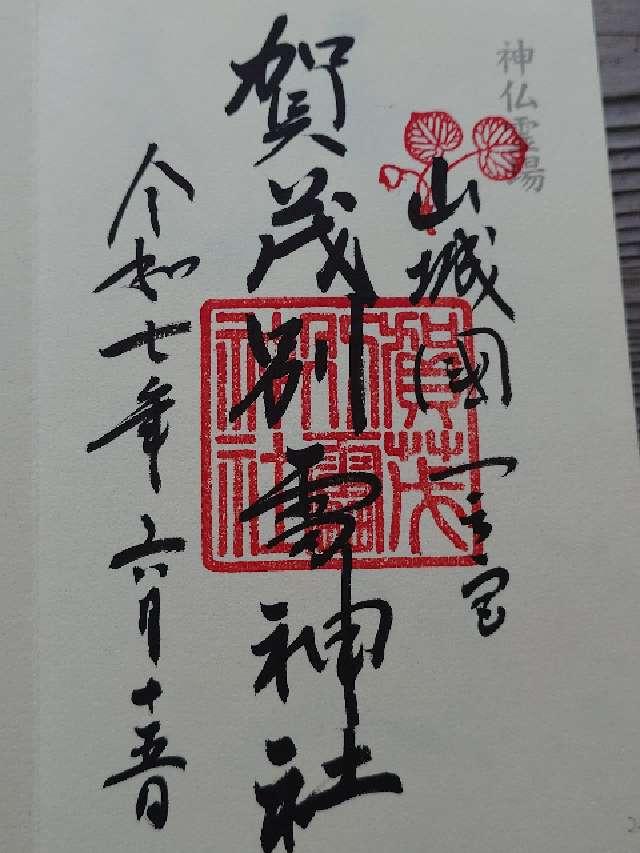 神仏霊場
山城國一宮
賀茂別雷神社
賀茂
別雷
神社
令和七年六月十五日